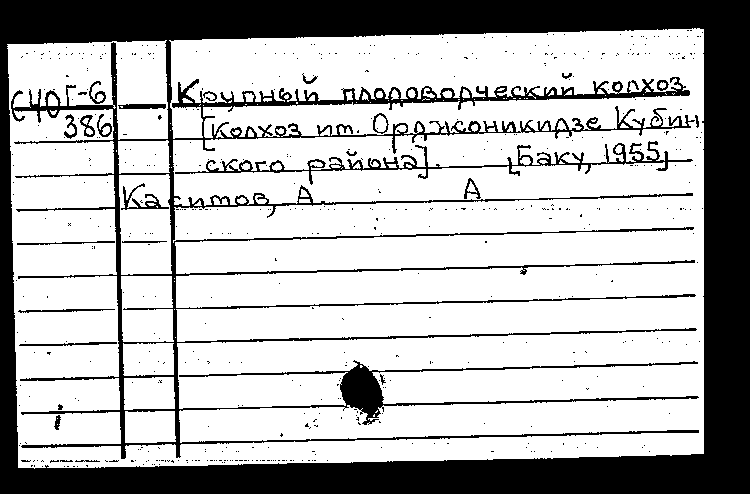 С40Г-6 Крупный плодоводческий колхоз
386 [колхоз им. Орджоникидзе Кубин-
ского района]. [Баку, 1955]
Касимов, А. А
i